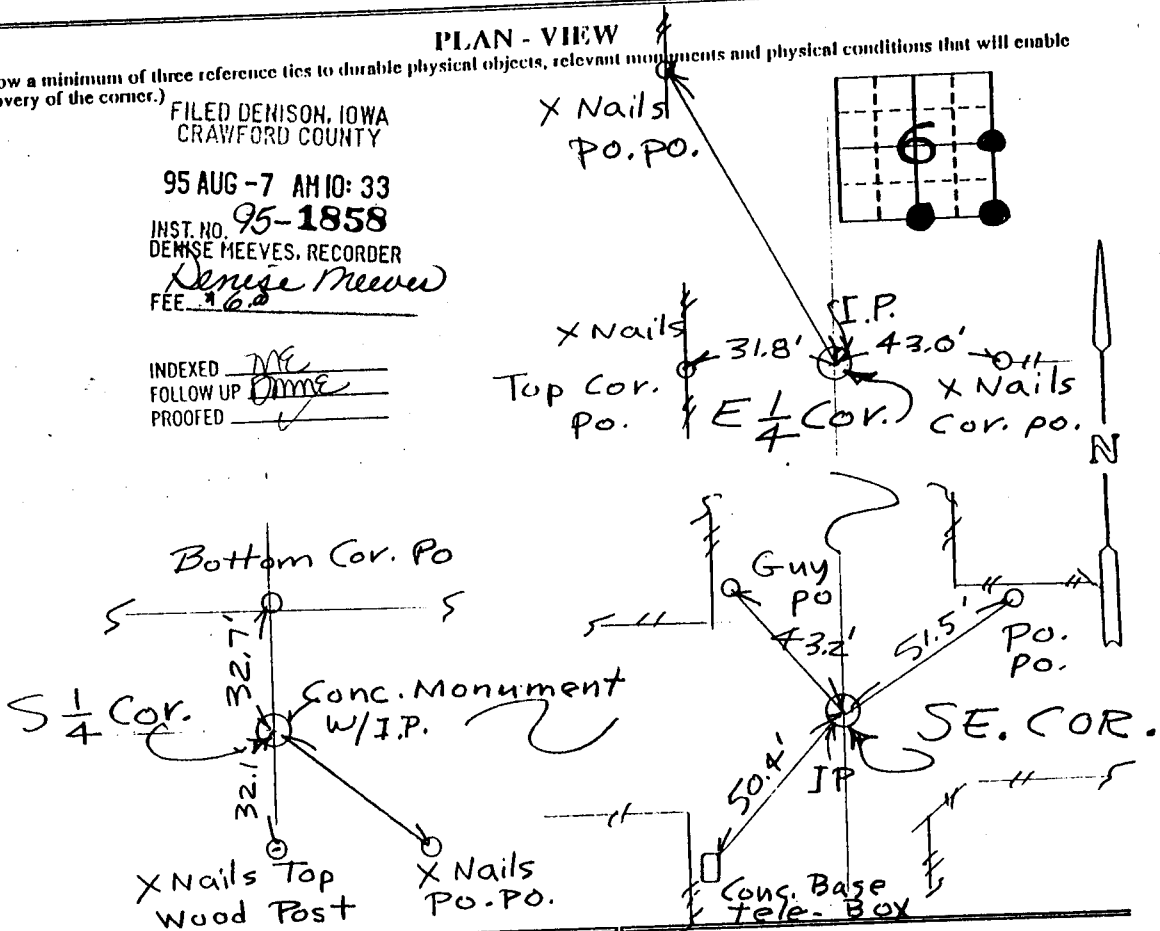 PLAN - VIEW
ow a minimum of three reference ties to durable physical objects, relevant monuments and physical conditions that will enable
overy of the corner.)
FILED DENISON, IOWA
CRAWFORD COUNTY
95 AUG -7 AM 10: 33
INST. NO. 95-1858
DENISE MEEVES, RECORDER
Denise Meeves
FEE $6.00
INDEXED
FOLLOW UP
PROOFED
X Nails
Po. Po.
6
X Nails
Top Cor.
Po.
31.8'
I.P.
43.0'
E 1/4 Cor.
X Nails
Cor. Po.
N
Bottom Cor. Po
32.7'
S 1/4 Cor.
Conc. Monument
W/I.P.
32.1'
X Nails Top
Wood Post
X Nails
Po. Po.
Guy
Po
43.2'
51.5'
Po.
Po.
SE. COR.
50.4'
IP
Conc. Base
Tele- Box